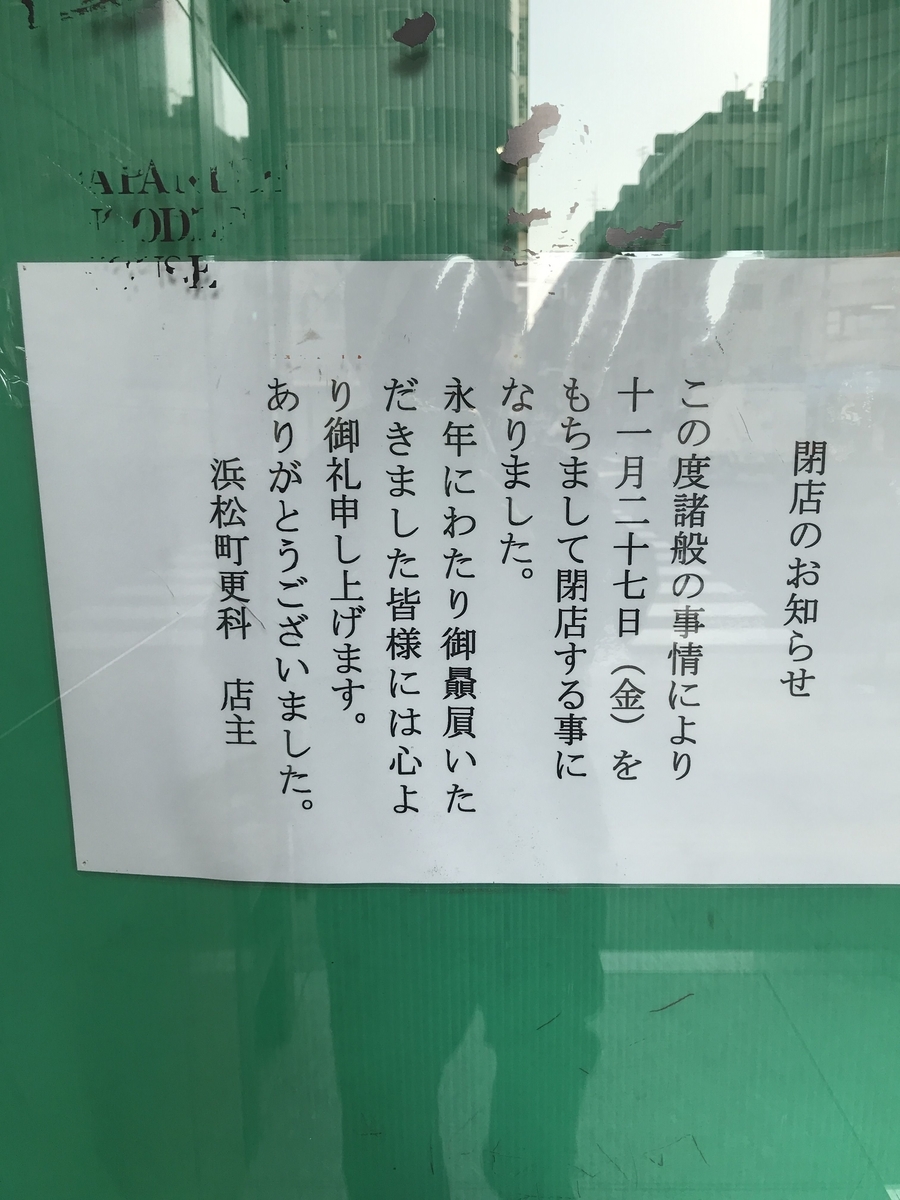 閉店のお知らせ
この度諸般の事情により
十一月二十七日（金）を
もちまして閉店する事に
なりました。
永年にわたり御贔屓いた
だきました皆様には心よ
り御礼申し上げます。
ありがとうございました。
浜松町更科　店主